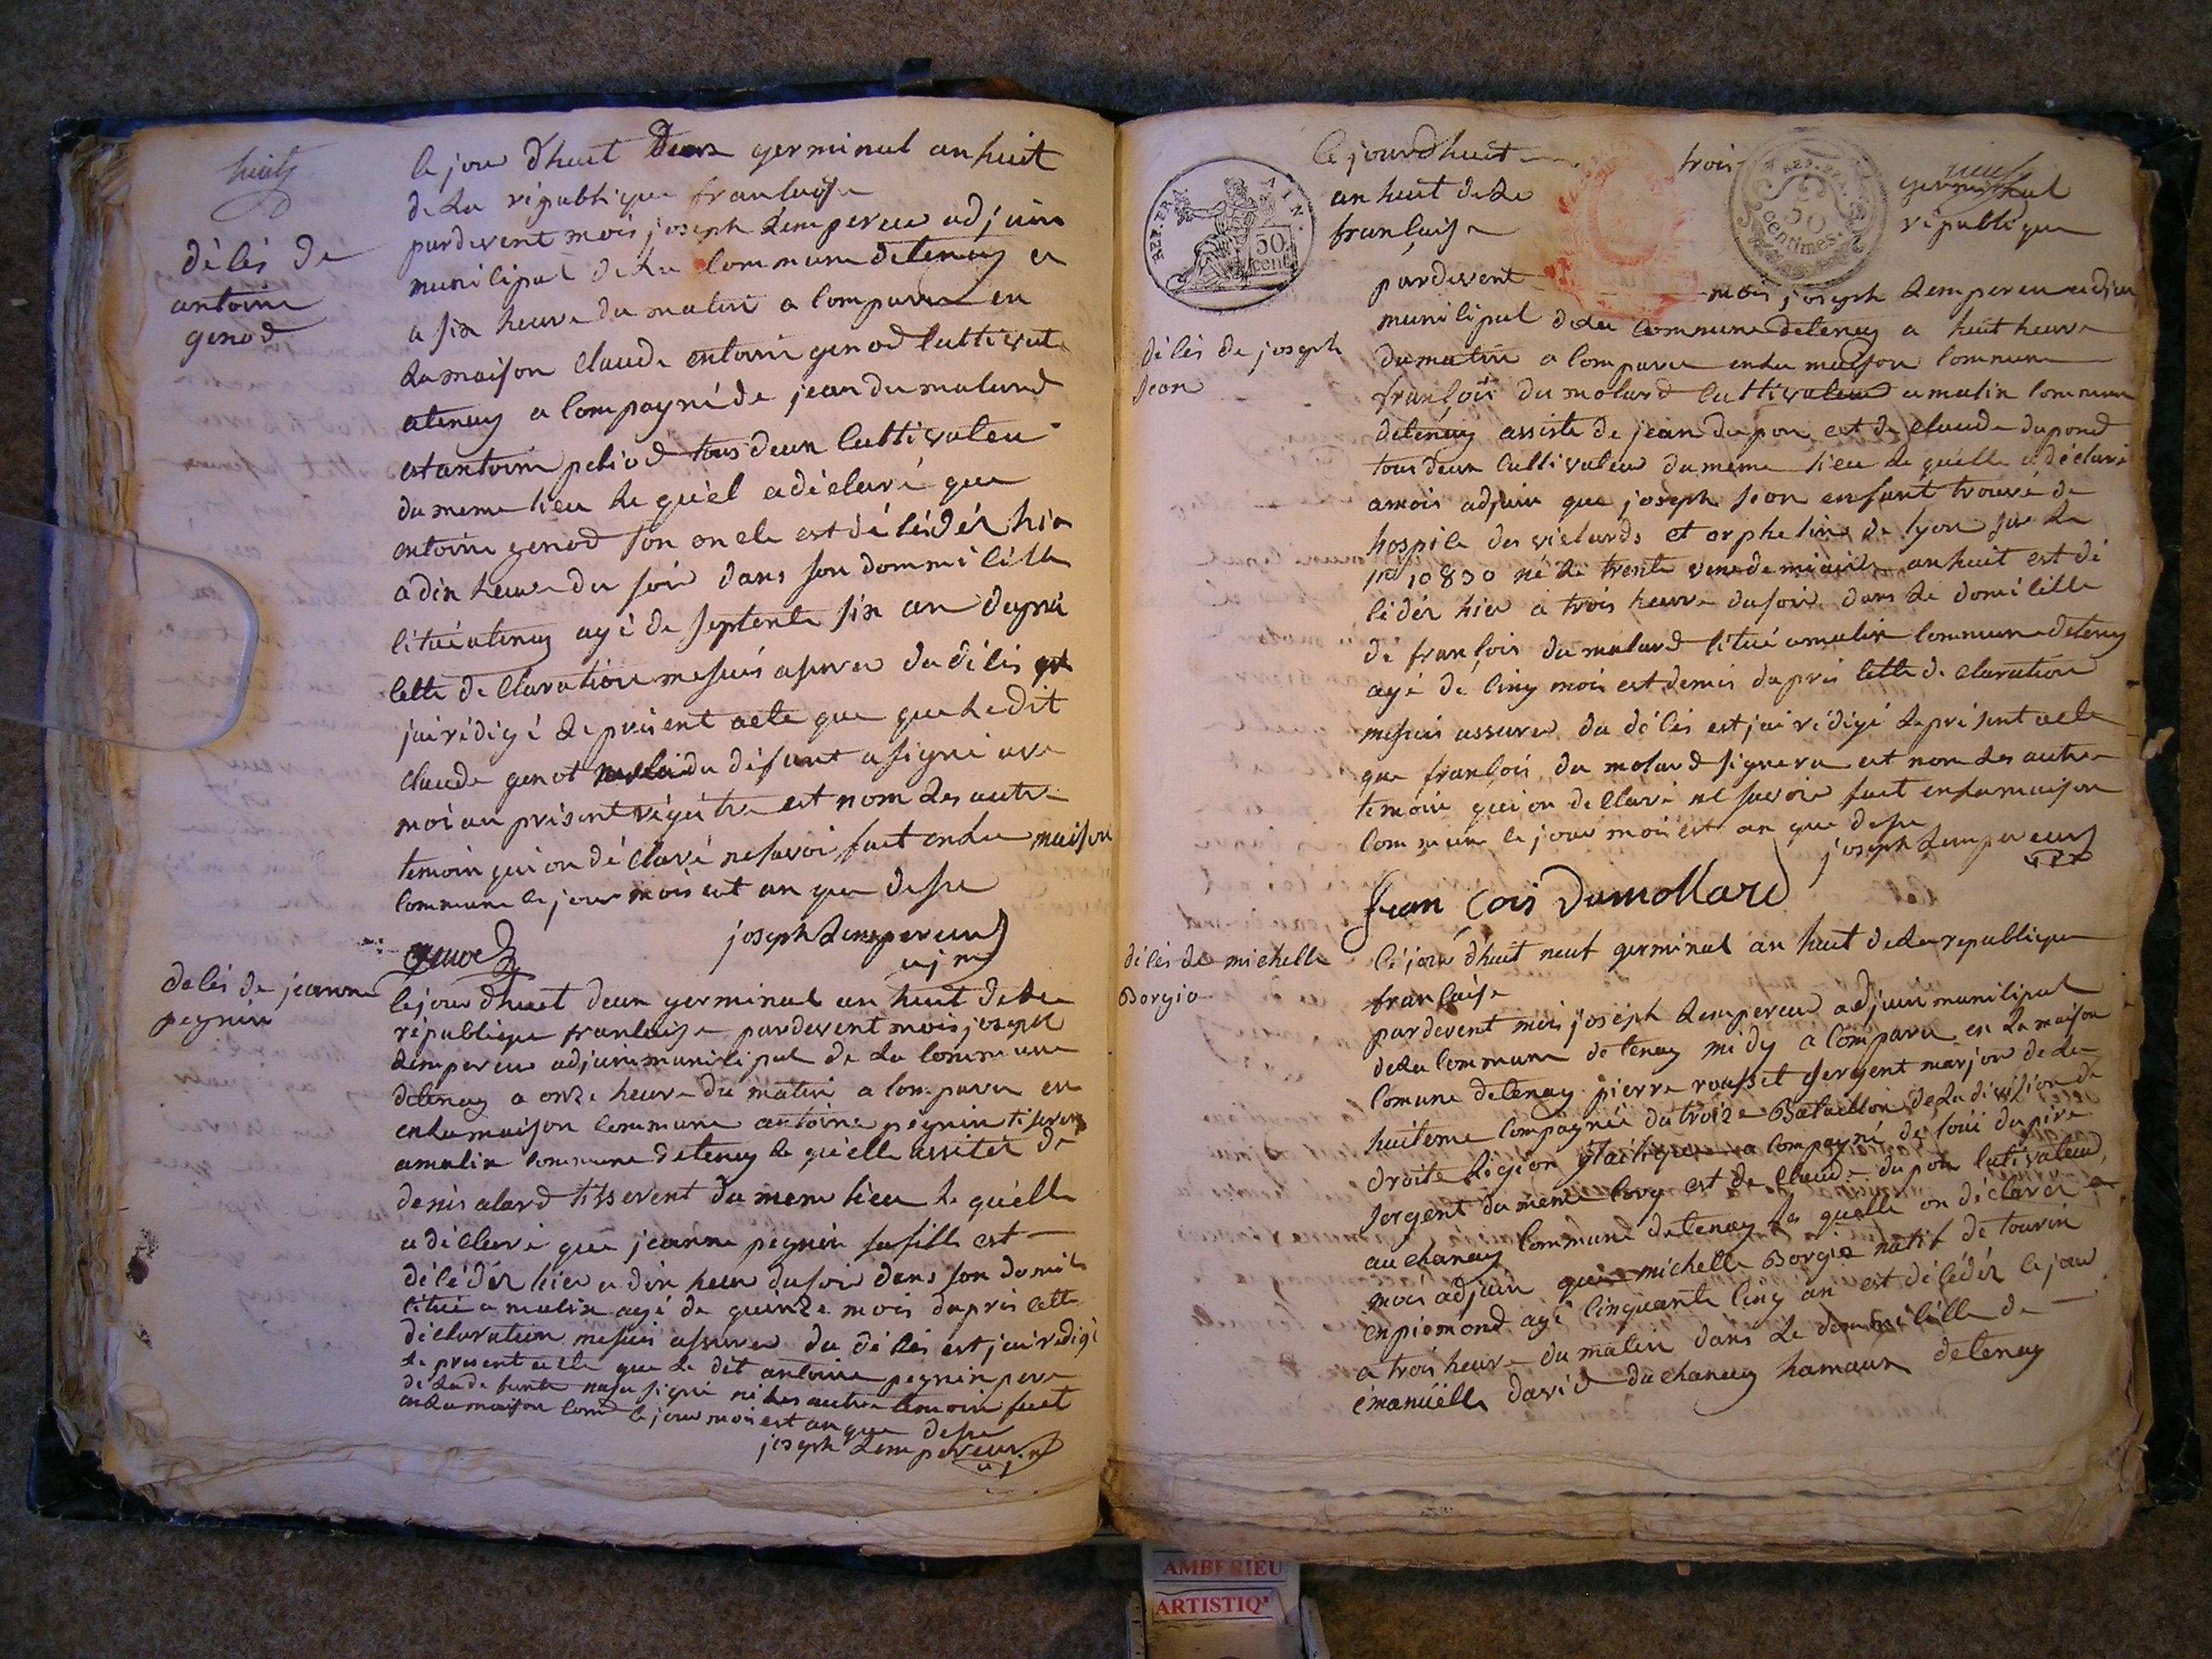 huit
délés de
antoine
genod
le jour d'huit deux germinal an huit
de La république franlaise
pardevent mois joseph Lempereur adjuin
munilipal de La Commune detenay en
a six heure du matin a Comparu en
La maison Claude antoine genod Cultivate
atenay a Compagné de jean du molard
et antoine petiod tous deux Cultivateu
du meme lieu Le quel a déclaré que
antoine genod son oncle est délédér hier
a dix heure du soir dans son dommicille
litué atenay agé de septente six an daprés
Cette de Claration mesuis asurer du délés
jai rédigé Le présent acte que que Le dit
Claude genot du défunt a signé ave
moi au présent régitre est nom Les autre
temoin qui on déClaré ne savoi fait en La maison
Commune le jour mois est an que dessu
genod joseph Lempereur
ajn
delés de jeanne
pegnin
le jour d'huit deux germinal an huit de La
république franlaise pardevent mois joseph
Lempereur adjuin munilipal de La Commune
detenay a onze heure du matin a Comparu en
en La maison Commune antoine pegnin tiseren
amalix Commune detenay Le quelle assités de
denis alard tisserent du meme lieu Le quelle
a déClaré que jeanne pegnin sa fille est
délédér hier a dix heur du soir dans son domile
litué a malix agé de quinze mois daprés Cette
déClaration mesuis assurer du délés est jai rédigé
Le present acte que Le dit antoine pegnin pere
de La de funte na su signé ni Les autre temoin fait
en La maison Com le jour mois est an que dessu
joseph Lempereur
ajn
REP. FRA. AIN.
50
cent.
50
centimes.
neuf
Ce jourd'huit trois germinal
an huit de La république
franlaise
pardevent mois joseph Lempereur adjui
munilipal de La Commune detenay a huit heure
du matin a Comparu en La maison Commune
délés de joseph
Jean
franſois du molard Cultivateur amalix Commune
detenay assiste de jean dupon est de Claude dupond
tous deux Cultivateur du meme lieu Le quelle a déclaré
amois adjuin que joseph Jean enfant trouvé de
hospice des vielards et orphelins de lyon sur Le
n° 10830 né Le trente vendemiaire an huit est dé
lédér hier a trois heure du soir dans Le domilille
de franſois du molard litué amalix Commune detenay
agé de Cinq mois est demis daprés Cette de Claration
mesuis assurer du délés est jai rédigé Le présent acte
que franſois du molard signera est non Les autre
temoin qui on de Claré ne savoir fait en La maison
Commune le jour mois est an que dessu
joseph Lempereur
Jran Cois Dumollard
délés de michelle
Borgio
Ce jour d'huit neuf germinal an huit de La republique
franlaise
pardevent mois joseph Lempereur adjuin munilipal
de La Commune de tenay midy a Comparu en La maison
Comune detenay pierre rousset sergent marjor de La
huiteme Compagnée du troize Bataillon de La division de
droite Légion ytailique a Compagné de loui dupire
sergent du meme Corp est de Claude dupon Cutivateur
au chanay Commune detenay Les quelle on déClarer a
mois adjuin que michelle Borgio natif de tourin
en piemond agé Cinquante Cinq an est délédér le jour
a trois heure du matin dans Le dommilille de
émanuëlle david du chanay hamaux detenay
AMBERIEU
ARTISTIQ'